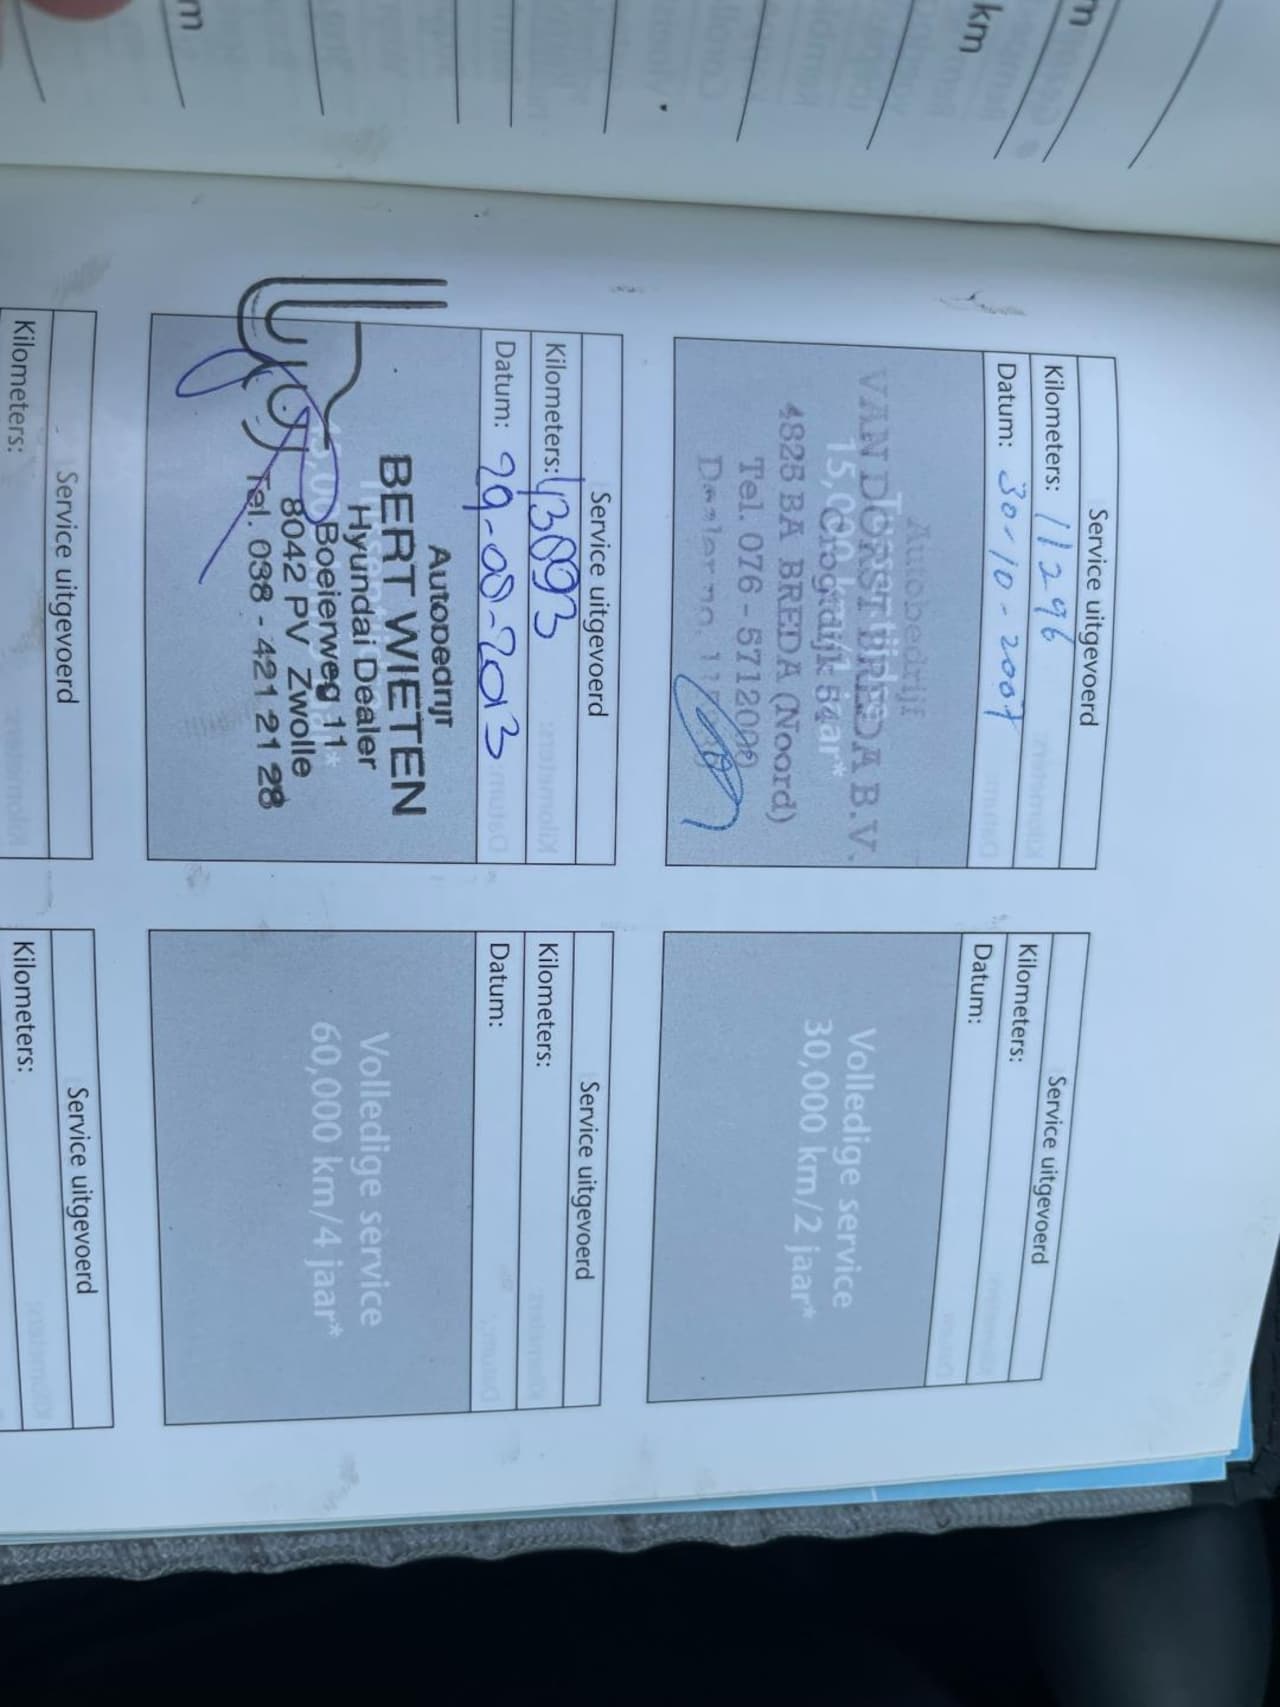 km
Service uitgevoerd
Kilometers: 11296
Datum: 30-10-2007
Autobedrijf
VAN DORST BREDA B.V.
15,000 km/1 jaar*
4825 BA BREDA (Noord)
Tel. 076 - 5712000
Dealer no.
Service uitgevoerd
Kilometers:
Datum:
Volledige service
30,000 km/2 jaar*
Service uitgevoerd
Kilometers: 43093
Datum: 29-08-2013
Autobedrijf
BERT WIETEN
Hyundai Dealer
Boeierweg 11
8042 PV Zwolle
Tel. 038 - 421 21 28
Service uitgevoerd
Kilometers:
Datum:
Volledige service
60,000 km/4 jaar*
Service uitgevoerd
Kilometers:
Service uitgevoerd
Kilometers: